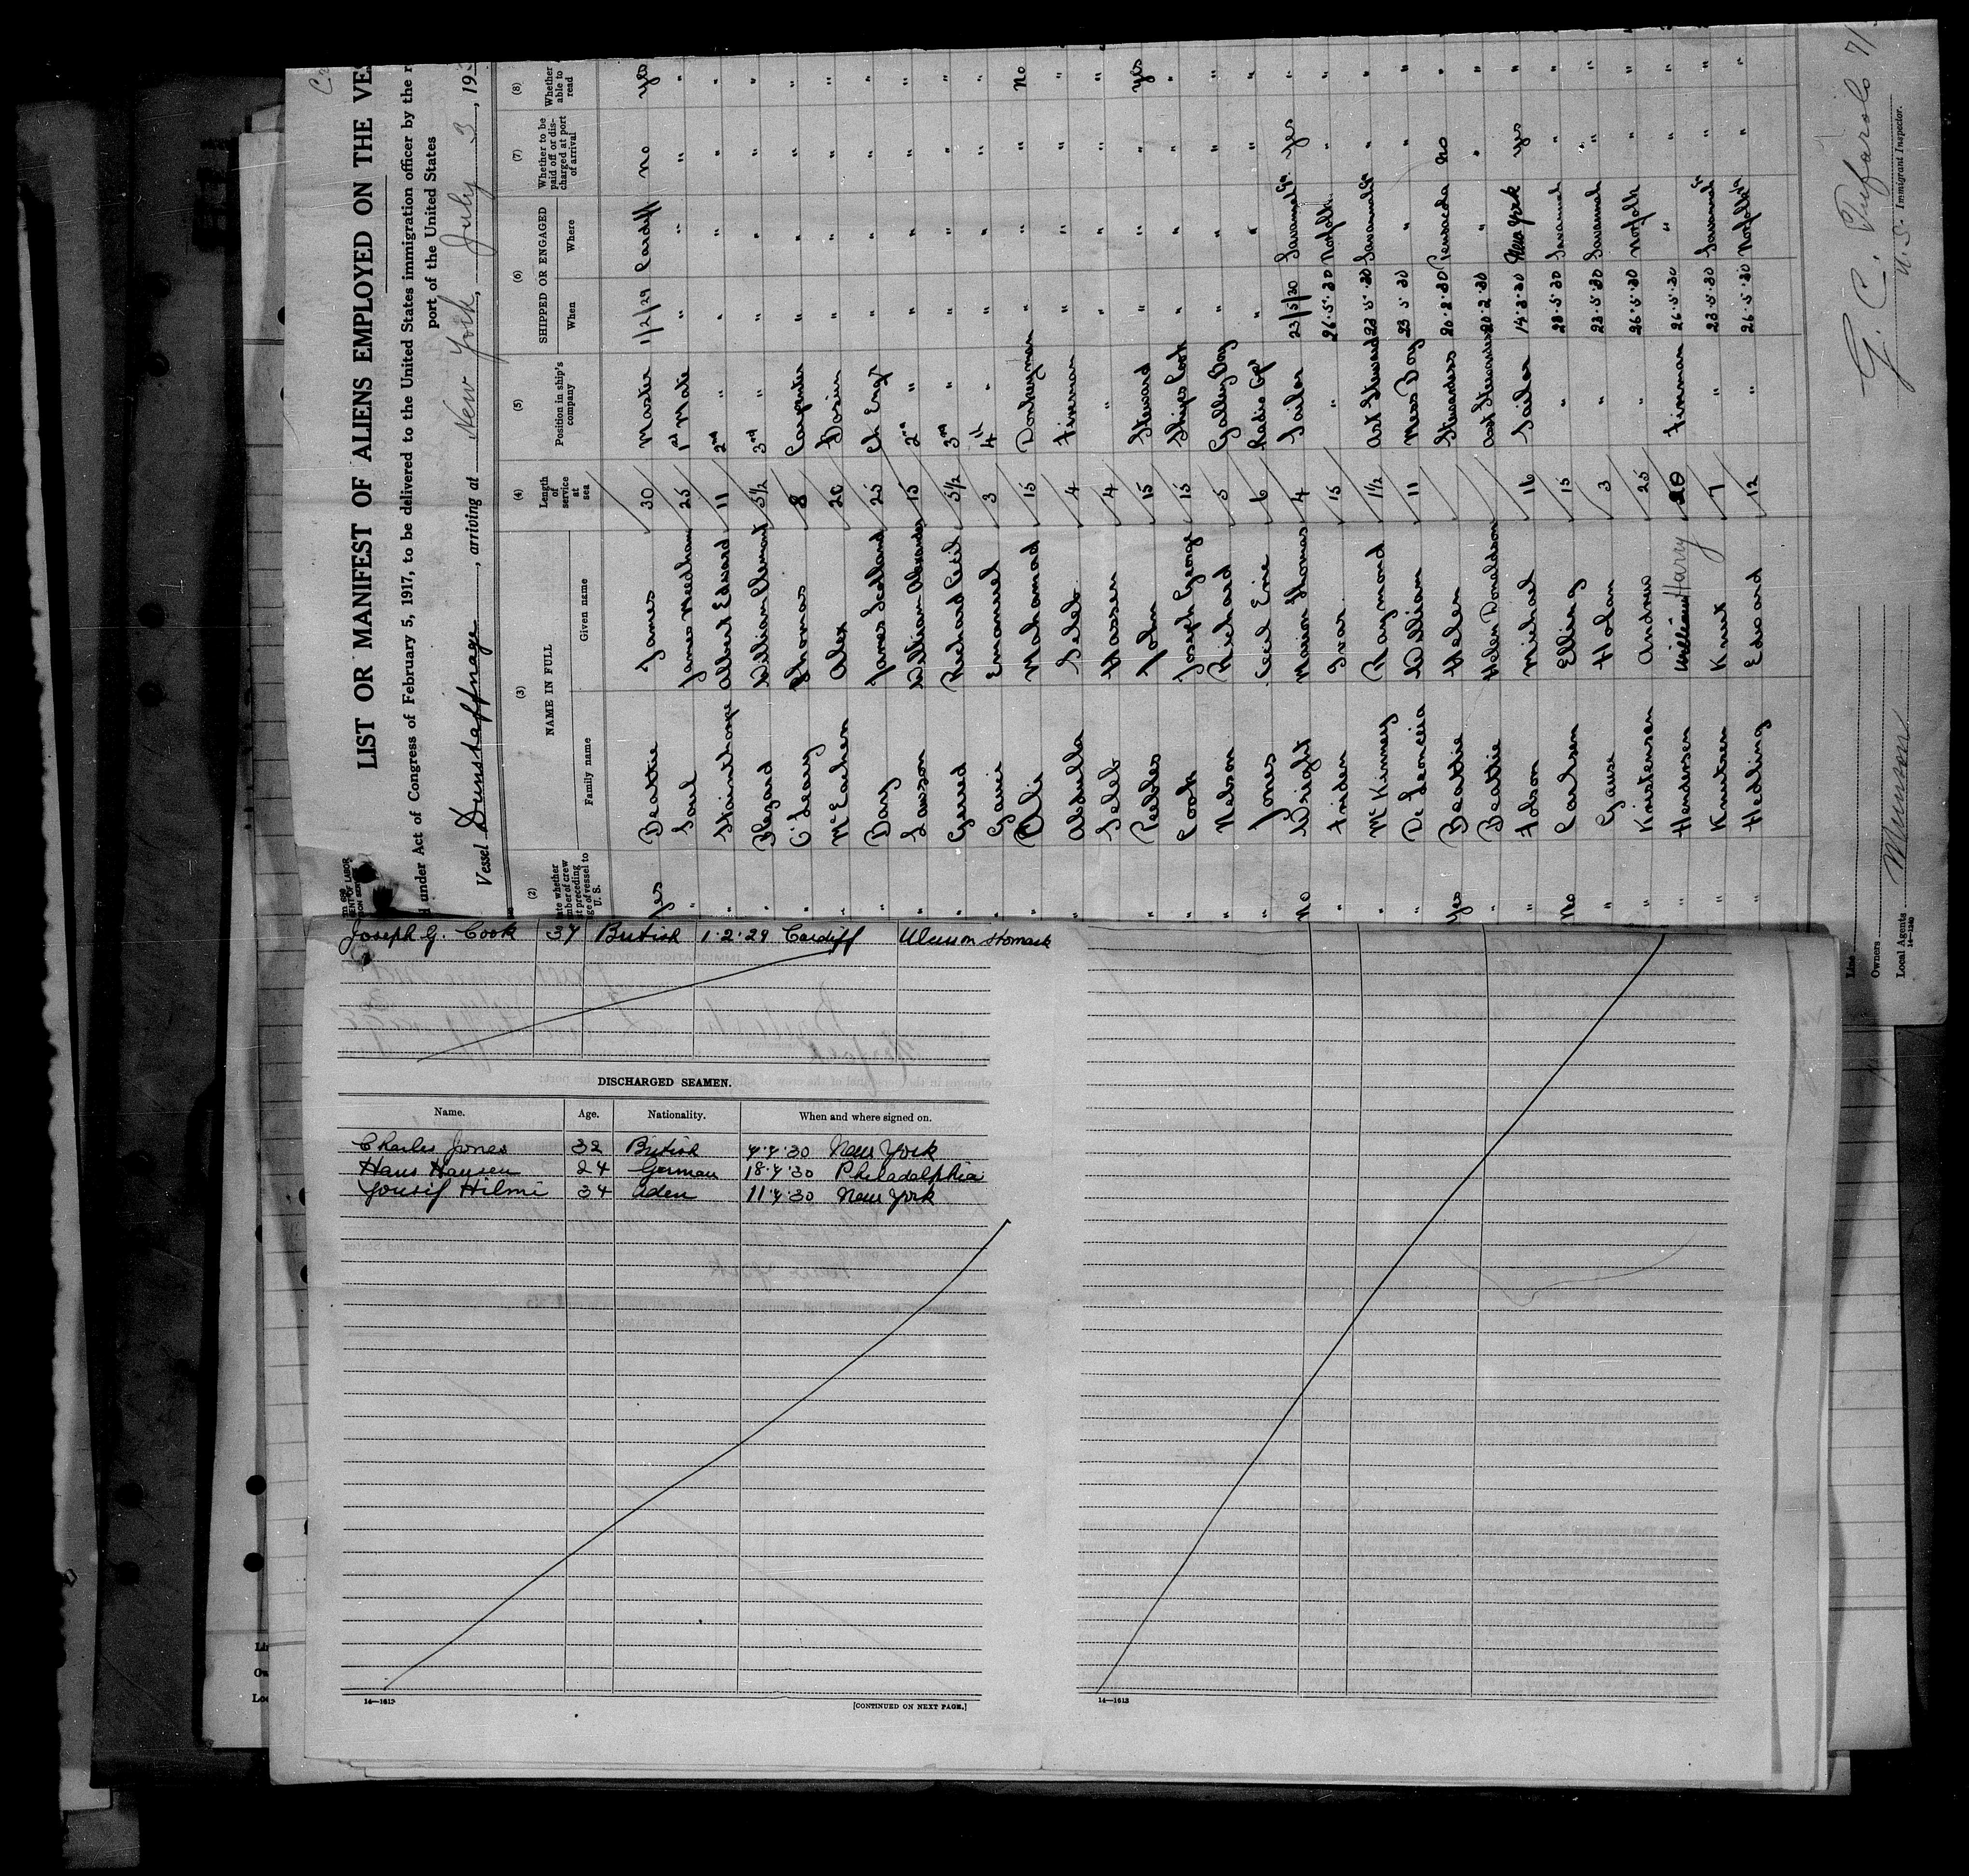 LIST OR MANIFEST OF ALIENS EMPLOYED ON THE VES
under Act of Congress of February 5, 1917, to be delivered to the United States immigration officer by the r
port of the United States
Vessel Dunstaffnage, arriving at New York, July 3, 19
(2) (3) (4) (5) (6) (7) (8)
NAME IN FULL
Family name Given name
Length of service at sea
Position in ship's company
SHIPPED OR ENGAGED
When Where
Whether to be paid off or discharged at port of arrival
Whether able to read
yes Beattie James 30 Master 1/2/29 Cardiff no yes
" Saul James Needham 25 1st Mate " " " "
" Stainthorpe Albert Edward 11 2nd " " " " "
" Blezard William Clement 5½ 3rd " " " " "
" O'Leary Thomas 8 Carpenter " " " "
" McEachen Alex 20 Bosun " " " "
" Day James Scotland 25 Ch Engr " " " "
" Lawson William Alexander 15 2nd " " " " "
" Gerred Richard Cecil 5½ 3rd " " " " "
" Emanuel 3 4th " " " " "
" Ali Mahamad 15 Donkeyman " " " No
" Abdulla Seleb 4 Fireman " " " "
" Seleb Hassen 4 " " " " "
" Peebles John 15 Steward " " " yes
" Cook Joseph George 15 Ships Cook " " " "
" Nelson Richard 5 Galley Boy " " " "
" Jones Cecil Eric 6 Radio Opr " " " "
No Wright Marion Thomas 4 Sailor 23/5/30 Savannah Ga yes "
" Friden Ivar 15 " 26.5.30 Norfolk " "
" McKinney Raymond 1½ Ast Steward 23.5.30 Savannah Ga " "
" William 11 Mess Boy 23.5.30 " " "
Yes Beattie Helen Stewardess 20.2.30 Pensacola No "
" Beattie Helen Donaldson Ast Stewardess 20.2.30 " " "
" Michael 16 Sailor 14.2.30 New York yes "
No Carlsen Elling 15 " 23.5.30 Savannah " "
" Gause Holan 3 " 23.5.30 Savannah " "
" Kristensen Andrew 25 " 26.5.30 Norfolk " "
" Hendersen William Harry 20 Fireman 26.5.30 " " "
" Knutsen Knut 7 " 23.5.30 Savannah Ga " "
" Hedling Edward 12 " 26.5.30 Norfolk Va " "
Line
Owners
Local Agents Munson
14—1240
U.S. Immigrant Inspector.
Joseph G. Cook 37 British 1.2.29 Cardiff Ulcer on Stomach
DISCHARGED SEAMEN.
Name. Age. Nationality. When and where signed on.
Charles Jones 32 British 4.4.30 New York
Hans Hansen 24 German 18.4.30 Philadelphia
Yousif Hilmi 34 Aden 11.4.30 New York
14—1613 [CONTINUED ON NEXT PAGE.]
14—1613